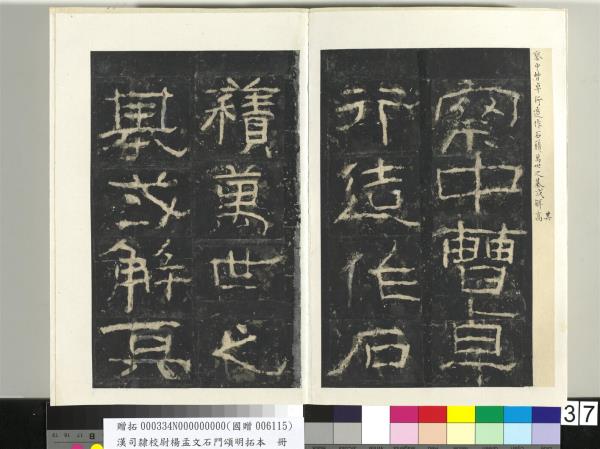 察中曹卓行造作石積萬世之基或解高
其
察中曹卓
行造作石
積萬世之
基或解高
贈拓 000334N000000000(國贈 006115)
漢司隸校尉楊孟文石門頌明拓本 冊
B 17 16
37